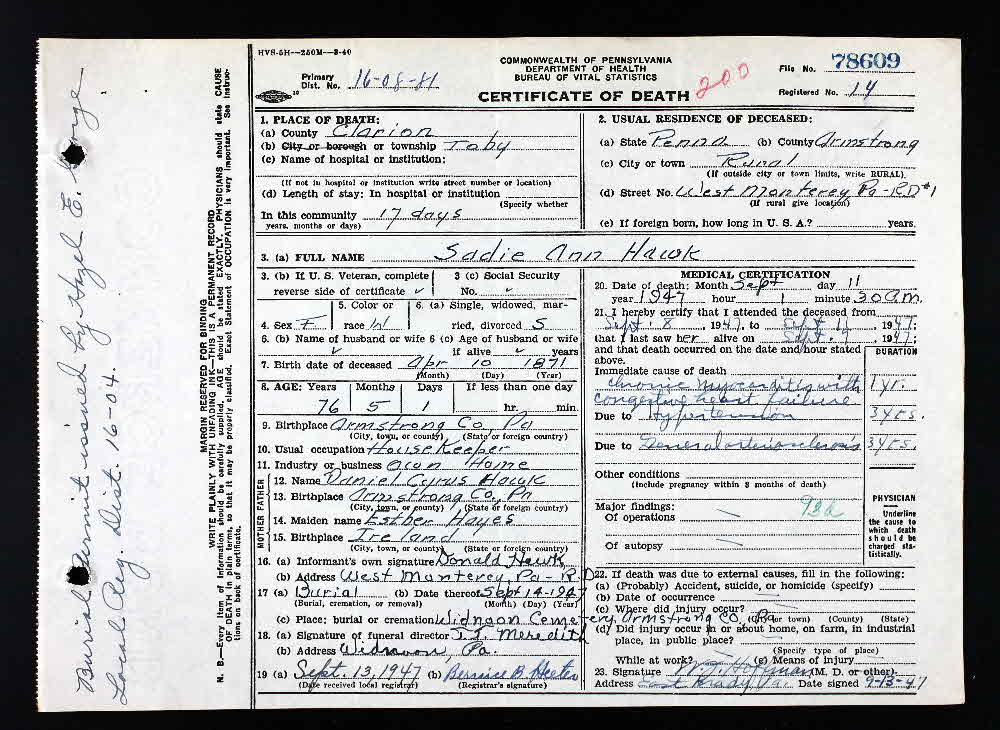 HVS-5H--250M--3-40
COMMONWEALTH OF PENNSYLVANIA
DEPARTMENT OF HEALTH
BUREAU OF VITAL STATISTICS
CERTIFICATE OF DEATH
200
Primary
Dist. No. 16-08-81
File No. 78609
Registered No. 14
1. PLACE OF DEATH:
(a) County Clarion
(b) City or borough or township Toby
(c) Name of hospital or institution:
(If not in hospital or institution write street number or location)
(d) Length of stay: In hospital or institution
(Specify whether
In this community 17 days
years, months or days)
2. USUAL RESIDENCE OF DECEASED:
(a) State Penna. (b) County Armstrong
(c) City or town Rural
(If outside city or town limits, write RURAL)
(d) Street No. West Monterey Pa-RD#1
(If rural give location)
(e) If foreign born, how long in U. S. A.? years.
3. (a) FULL NAME Sadie Ann Hawk
3. (b) If U. S. Veteran, complete
reverse side of certificate
3 (c) Social Security
No.
4. Sex F
5. Color or
race W
6. (a) Single, widowed, mar-
ried, divorced S
6. (b) Name of husband or wife
6 (c) Age of husband or wife
if alive years
7. Birth date of deceased Apr 10 1871
(Month) (Day) (Year)
8. AGE: Years Months Days If less than one day
76 5 1 hr. min.
9. Birthplace Armstrong Co, Pa
(City, town, or county) (State or foreign country)
10. Usual occupation HouseKeeper
11. Industry or business Own Home
FATHER
12. Name Daniel Cyrus Hawk
13. Birthplace Armstrong Co, Pa
(City, town, or county) (State or foreign country)
MOTHER
14. Maiden name Esther Hayes
15. Birthplace Ireland
(City, town, or county) (State or foreign country)
16. (a) Informant's own signature Donald Hawk
(b) Address West Monterey, Pa-RD
17 (a) Burial (b) Date thereof Sept 14-1947
(Burial, cremation, or removal) (Month) (Day) (Year)
(c) Place: burial or cremation Widnoon Cemetery, Armstrong Co, Pa
18. (a) Signature of funeral director Meredith
(b) Address Widnoon, Pa.
19 (a) Sept. 13, 1947 (b) Bernice B. Heeter
(Date received local registrar) (Registrar's signature)
MEDICAL CERTIFICATION
20. Date of death: Month Sept day 11
year 1947 hour 1 minute 30 a.m.
21. I hereby certify that I attended the deceased from
Sept. 8, 1947, to Sept 11, 1947;
that I last saw her alive on Sept. 9, 1947;
and that death occurred on the date and hour stated
above.
DURATION
Immediate cause of death
Chronic myocarditis with 1 yr.
congestive heart failure
Due to Hypertension 3 yrs.
Due to General arteriosclerosis 3 yrs.
Other conditions
(Include pregnancy within 3 months of death)
Major findings:
Of operations
93d
Of autopsy
PHYSICIAN
Underline
the cause to
which death
should be
charged sta-
tistically.
22. If death was due to external causes, fill in the following:
(a) (Probably) Accident, suicide, or homicide (specify)
(b) Date of occurrence
(c) Where did injury occur?
(City or town) (County) (State)
(d) Did injury occur in or about home, on farm, in industrial
place, in public place?
(Specify type of place)
While at work? (e) Means of injury
23. Signature (M. D. or other).
Address East Brady, Pa. Date signed 9-13-47
MARGIN RESERVED FOR BINDING
WRITE PLAINLY WITH UNFADING INK—THIS IS A PERMANENT RECORD
N. B.—Every item of information should be carefully supplied. AGE should be stated EXACTLY. PHYSICIANS should state CAUSE
OF DEATH in plain terms, so that it may be properly classified. Exact Statement of OCCUPATION is very important. See instruc-
tions on back of certificate.
Burial permit issued by Hazel E.
Local Reg. Dist. 16-04.